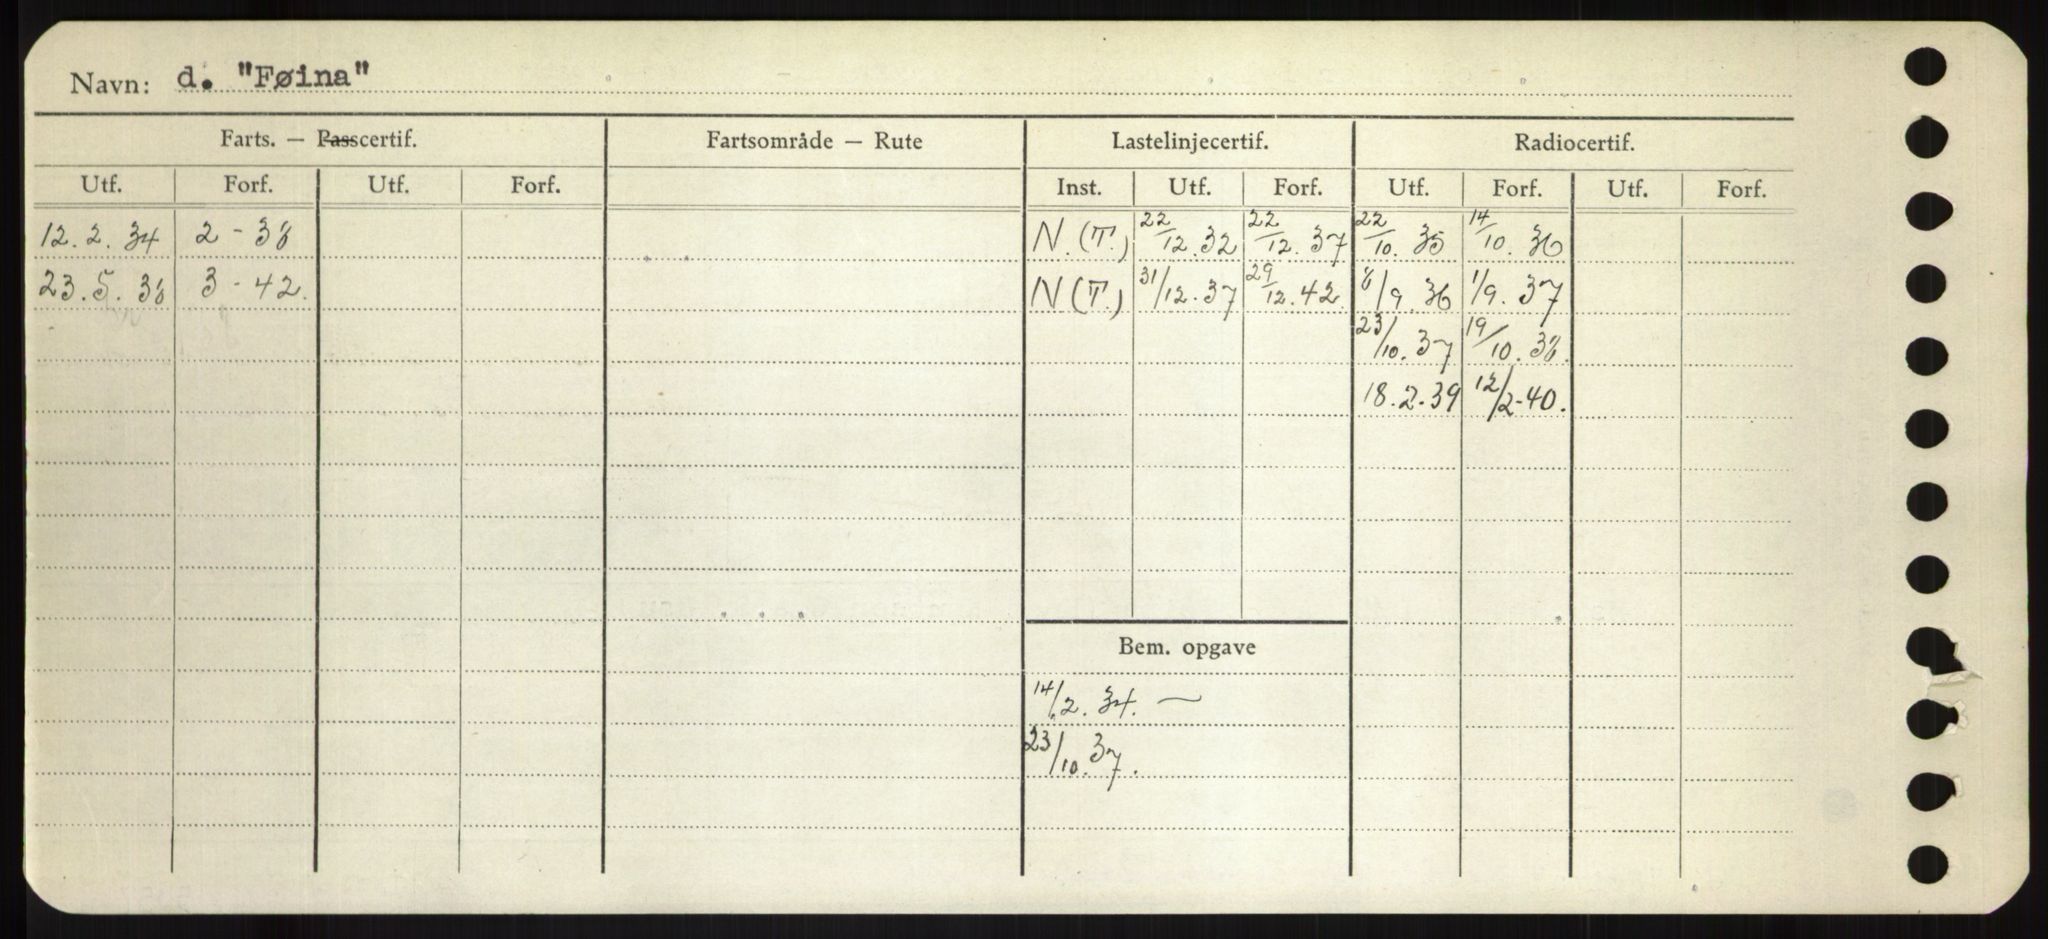 Navn: d. "Føina"
Farts. — Passcertif. Fartsområde — Rute Lastelinjecertif. Radiocertif.
Utf. Forf. Utf. Forf. Inst. Utf. Forf. Utf. Forf. Utf. Forf.
12.2.34 2-38 N.(T.) 22/12.32 22/12.37 22/10.35 14/10.36
23.5.38 3-42. N(T.) 31/12.37 29/12.42. 8/9.36 1/9.37
23/10.37 19/10.38.
18.2.39 12/2-40.
Bem. opgave
14/2.34. —
23/10.37.